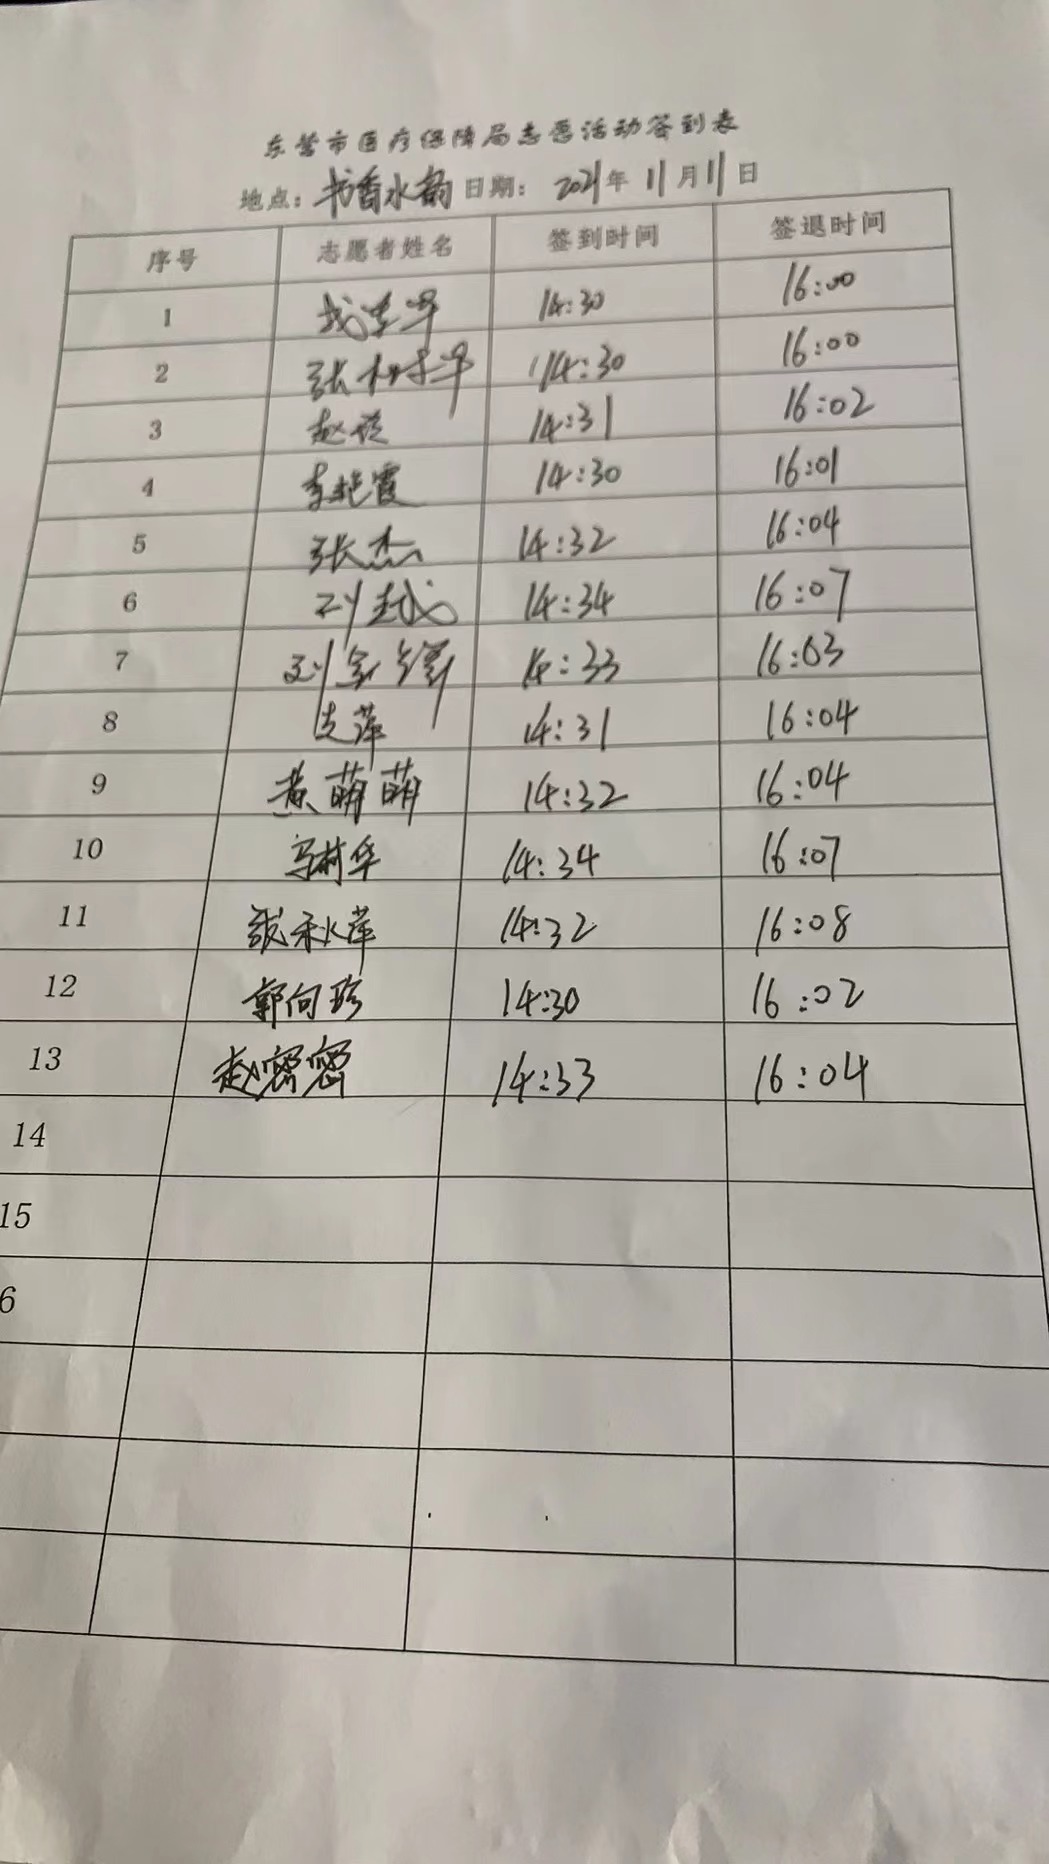 东营市医疗保障局志愿活动签到表
地点：书香水韵 日期： 2021年 11月11日
序号 志愿者姓名 签到时间 签退时间
1 14:30 16:00
2 张树泽 14:30 16:00
3 14:31 16:02
4 李艳霞 14:30 16:01
5 张杰 14:32 16:04
6 刘越 14:34 16:07
7 刘金锋 14:33 16:03
8 14:31 16:04
9 黄萌萌 14:32 16:04
10 马树华 14:34 16:07
11 张永萍 14:32 16:08
12 郭向珍 14:30 16:02
13 赵密密 14:33 16:04
14
15
6